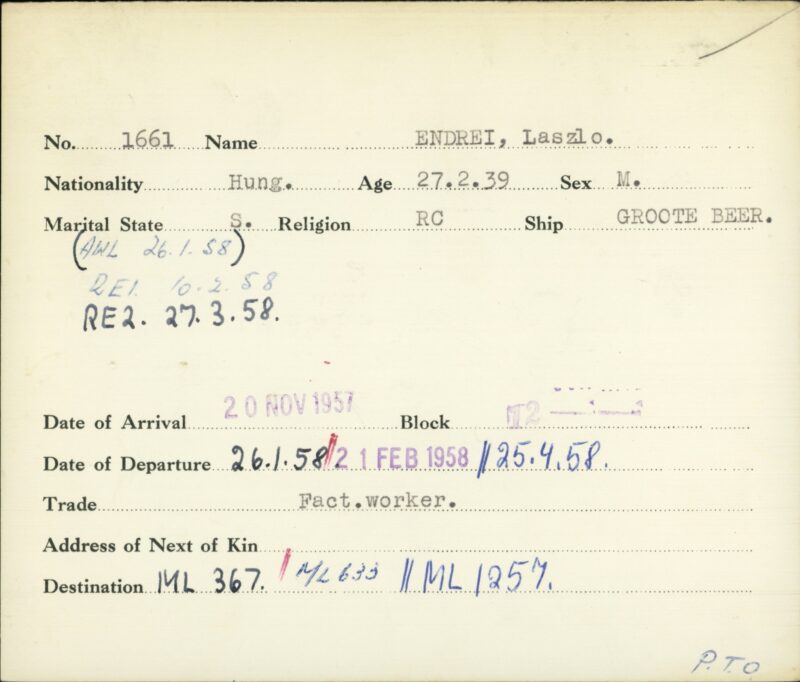 No. 1661 Name ENDREI, Laszlo.
Nationality Hung. Age 27.2.39 Sex M.
Marital State S. Religion RC Ship GROOTE BEER.
(AWL 26.1.58)
RE1. 10.2.58
RE2. 27.3.58.
Date of Arrival 20 NOV 1957 Block
Date of Departure 26.1.58 // 21 FEB 1958 // 25.4.58.
Trade Fact.worker.
Address of Next of Kin
Destination ML 367. / M/L 633 // ML 1257.
P.T.O